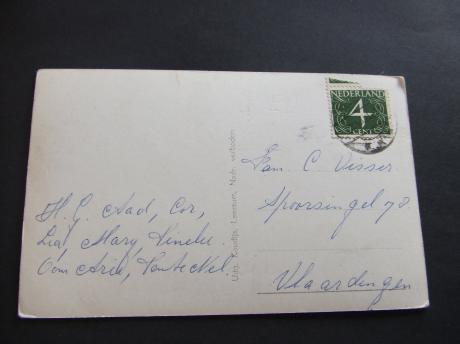 NEDERLAND
4
CENT
H. G. Aad, Cor,
Lia, Mary, Tineke
Oom Arie, Tante Nel.
Uitg. Kooltje, Leersum, Nadr. verboden
Fam. C. Visser
Spoorsingel 70.
Vlaardingen